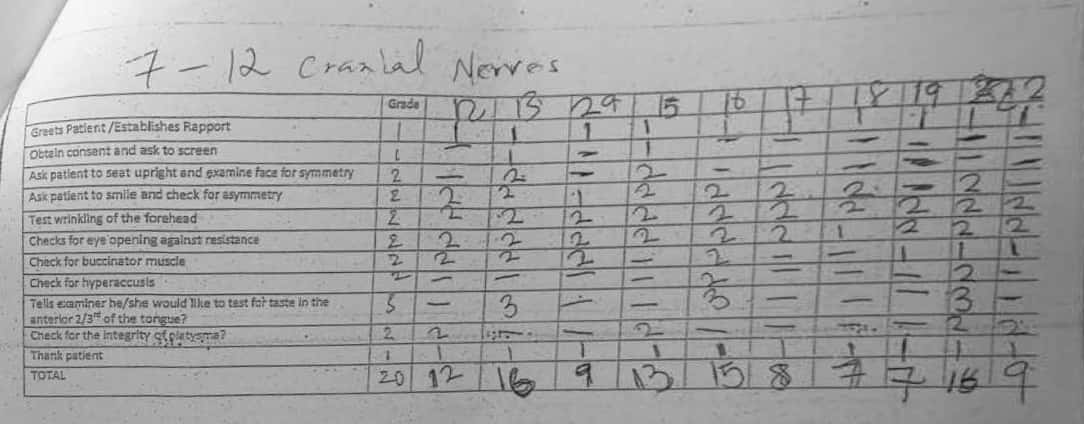 7 - 12 Cranial Nerves
Grade 12 13 29 15 16 17 18 19 22
Greets Patient /Establishes Rapport 1 1 1 1 1 1 1 1 1 1 1
Obtain consent and ask to screen 1 — 1 — 1 — — — — — —
Ask patient to seat upright and examine face for symmetry 2 — 2 — 2 — — — — — —
Ask patient to smile and check for asymmetry 2 2 2 1 2 2 2 2 — 2 —
Test wrinkling of the forehead 2 2 2 2 2 2 2 2 2 2 2
Checks for eye opening against resistance 2 2 2 2 2 2 2 1 2 2 2
Check for buccinator muscle 2 2 2 2 — 2 — — 1 1 1
Check for hyperaccusis 2 — — — — 2 — — — 2 —
Tells examiner he/she would like to test for taste in the
anterior 2/3rd of the tongue? 5 — 3 — — 3 — — — 3 —
Check for the integrity of platysma? 2 2 — — 2 — — — — 2 2
Thank patient 1 1 1 1 1 1 1 1 1 1 1
TOTAL 20 12 16 9 13 15 8 7 7 16 9